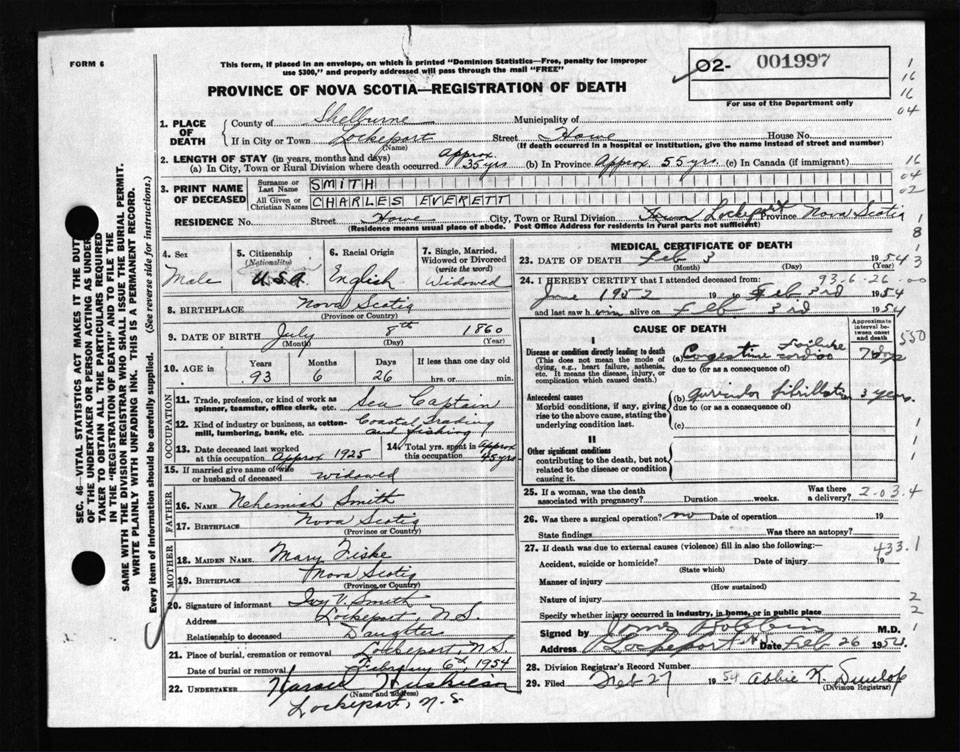 FORM 6
This form, if placed in an envelope, on which is printed "Dominion Statistics—Free, penalty for improper
use $300," and properly addressed will pass through the mail "FREE"
02- 001997
For use of the Department only
PROVINCE OF NOVA SCOTIA—REGISTRATION OF DEATH
1. PLACE OF DEATH
County of Shelburne Municipality of
If in City or Town Lockeport Street Howe House No.
(Name) (If death occurred in a hospital or institution, give the name instead of street and number)
2. LENGTH OF STAY (in years, months and days)
(a) In City, Town or Rural Division where death occurred Approx. 35 yrs (b) In Province Approx. 55 yrs. (c) In Canada (if immigrant)
3. PRINT NAME OF DECEASED
Surname or Last Name SMITH
All Given or Christian Names CHARLES EVERETT
RESIDENCE No. Street Howe City, Town or Rural Division Lockeport Province Nova Scotia
(Residence means usual place of abode. Post Office Address for residents in rural parts not sufficient)
4. Sex Male
5. Citizenship (Nationality) U.S.A.
6. Racial Origin English
7. Single, Married, Widowed or Divorced (write the word) Widowed
8. BIRTHPLACE Nova Scotia
(Province or Country)
9. DATE OF BIRTH July 8th 1860
(Month) (Day) (Year)
10. AGE in Years 93 Months 6 Days 26 If less than one day old hrs. or min.
OCCUPATION
11. Trade, profession, or kind of work as spinner, teamster, office clerk, etc. Sea Captain
12. Kind of industry or business, as cotton-mill, lumbering, bank, etc. Coastal Trading and Fishing
13. Date deceased last worked at this occupation Approx 1925
14. Total yrs. spent in this occupation Approx 45 yrs
15. If married give name of wife or husband of deceased widowed
FATHER
16. NAME Nehemiah Smith
17. BIRTHPLACE Nova Scotia
MOTHER
18. MAIDEN NAME Mary
19. BIRTHPLACE Nova Scotia
(Province or Country)
20. Signature of informant Ivy V. Smith
Address Lockeport, N.S.
Relationship to deceased Daughter
21. Place of burial, cremation or removal Lockeport, N.S.
Date of burial or removal February 6th 1954
22. UNDERTAKER
(Name and address)
Lockeport, N.S.
MEDICAL CERTIFICATE OF DEATH
23. DATE OF DEATH Feb 3 1954
(Month) (Day) (Year)
24. I HEREBY CERTIFY that I attended deceased from
June 1952 19 to Feb 3rd 1954
and last saw him alive on Feb 3rd 1954
CAUSE OF DEATH
Approximate interval between onset and death
I
Disease or condition directly leading to death
(This does not mean the mode of dying, e.g., heart failure, asthenia, etc. It means the disease, injury, or complication which caused death.)
(a) Congestive cardiac Failure 7 days
due to (or as a consequence of)
Antecedent causes
Morbid conditions, if any, giving rise to the above cause, stating the underlying condition last.
(b) fibrillation 3 years
due to (or as a consequence of)
(c)
II
Other significant conditions
contributing to the death, but not related to the disease or condition causing it.
25. If a woman, was the death associated with pregnancy? Duration weeks. Was there a delivery?
26. Was there a surgical operation? no Date of operation 19
State findings Was there an autopsy?
27. If death was due to external causes (violence) fill in also the following:—
Accident, suicide or homicide? Date of injury 19
(State which)
Manner of injury
(How sustained)
Nature of injury
Specify whether injury occurred in industry, in home, or in public place
Signed by M.D.
Address Lockeport N.S. Date Feb 26 1954
28. Division Registrar's Record Number
29. Filed Feb 27 1954 Abbie N. Dunlop
(Division Registrar)
93.6.26
550
2.03.4
433.1
SEC. 46—VITAL STATISTICS ACT MAKES IT THE DUTY
OF THE UNDERTAKER OR PERSON ACTING AS UNDER-
TAKER TO OBTAIN ALL THE PARTICULARS REQUIRED
IN THE "REGISTRATION OF DEATH" AND TO FILE THE
SAME WITH THE DIVISION REGISTRAR WHO SHALL ISSUE THE BURIAL PERMIT.
WRITE PLAINLY WITH UNFADING INK. THIS IS A PERMANENT RECORD.
Every item of information should be carefully supplied. (See reverse side for instructions.)